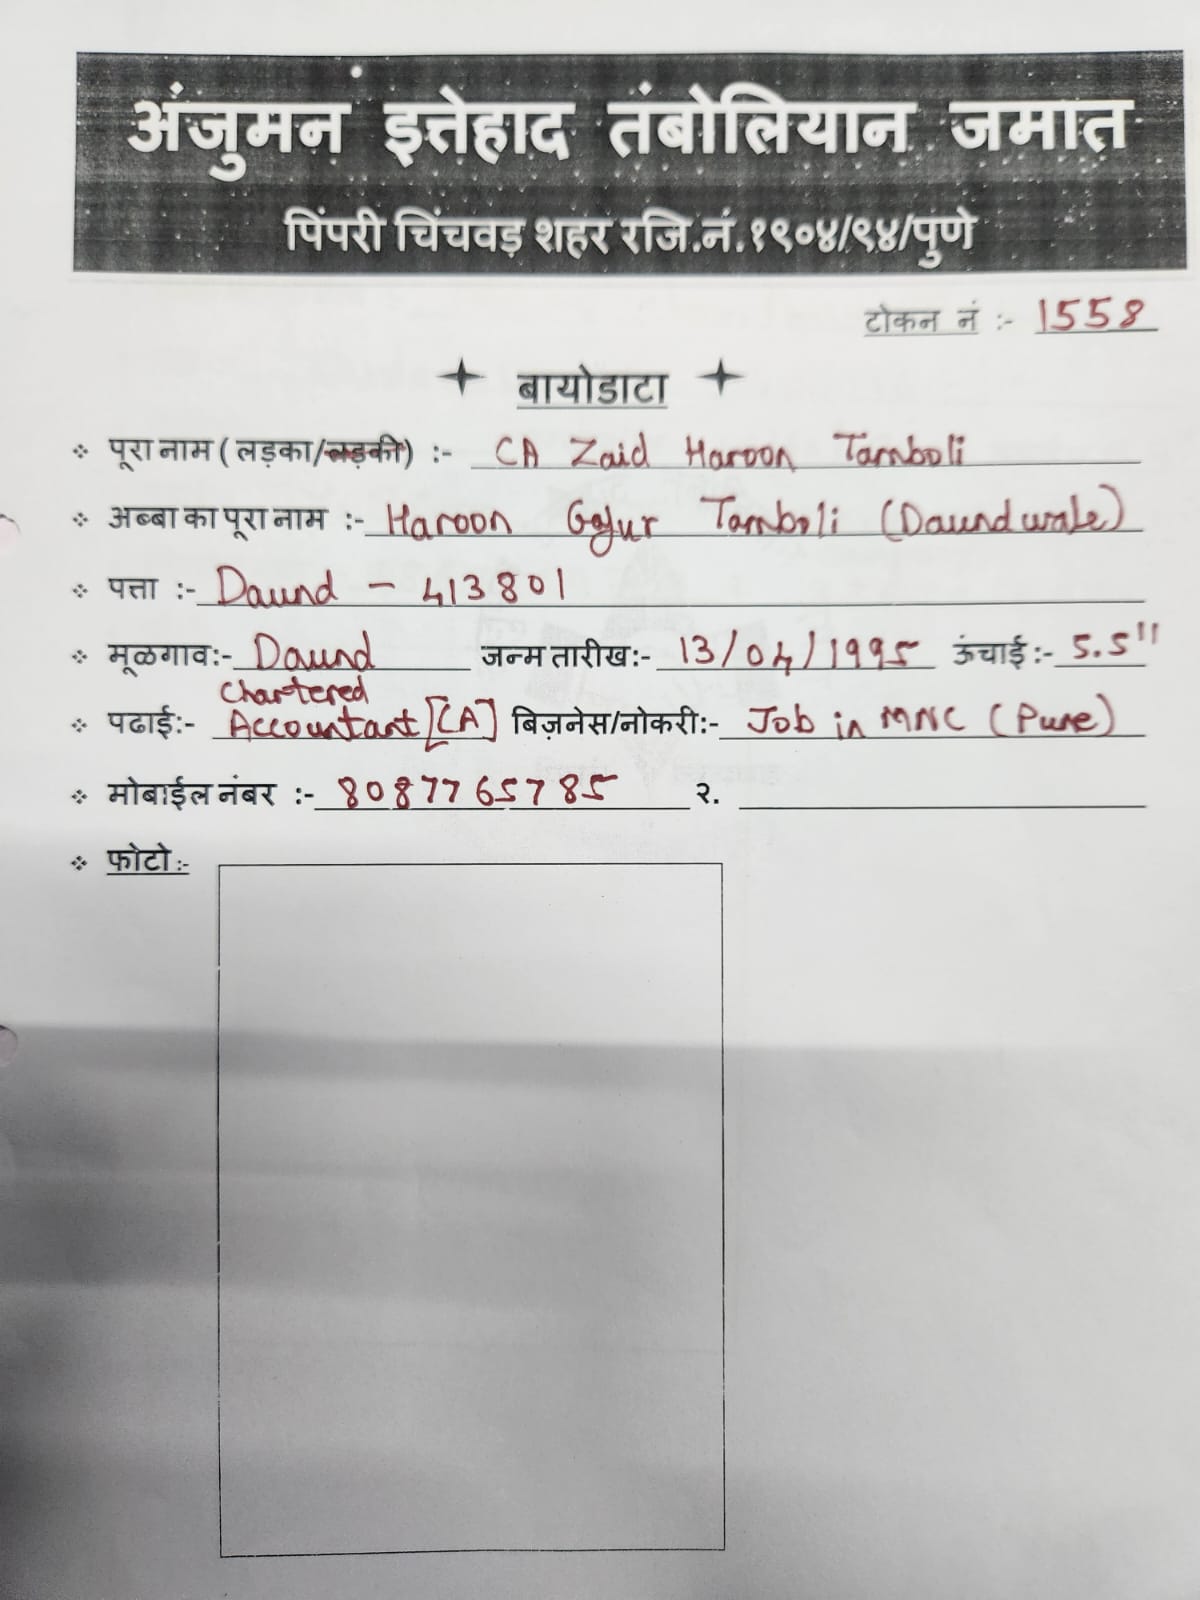 अंजुमन इत्तेहाद तंबोलियान जमात
पिंपरी चिंचवड़ शहर रजि.नं.१९०४/९४/पुणे
टोकन नं :- 1558
बायोडाटा
पूरा नाम ( लड़का/लड़की) :- CA Zaid Haroon Tamboli
अब्बा का पूरा नाम :- Haroon Gafur Tamboli (Daund wale)
पत्ता :- Daund - 413801
मूळगाव:- Daund जन्म तारीख:- 13/04/1995 ऊंचाई:- 5.5"
पढाई:- Chartered Accountant [CA] बिज़नेस/नोकरी:- Job in MNC (Pune)
मोबाईल नंबर :- 8087765785 २.
फोटो:-